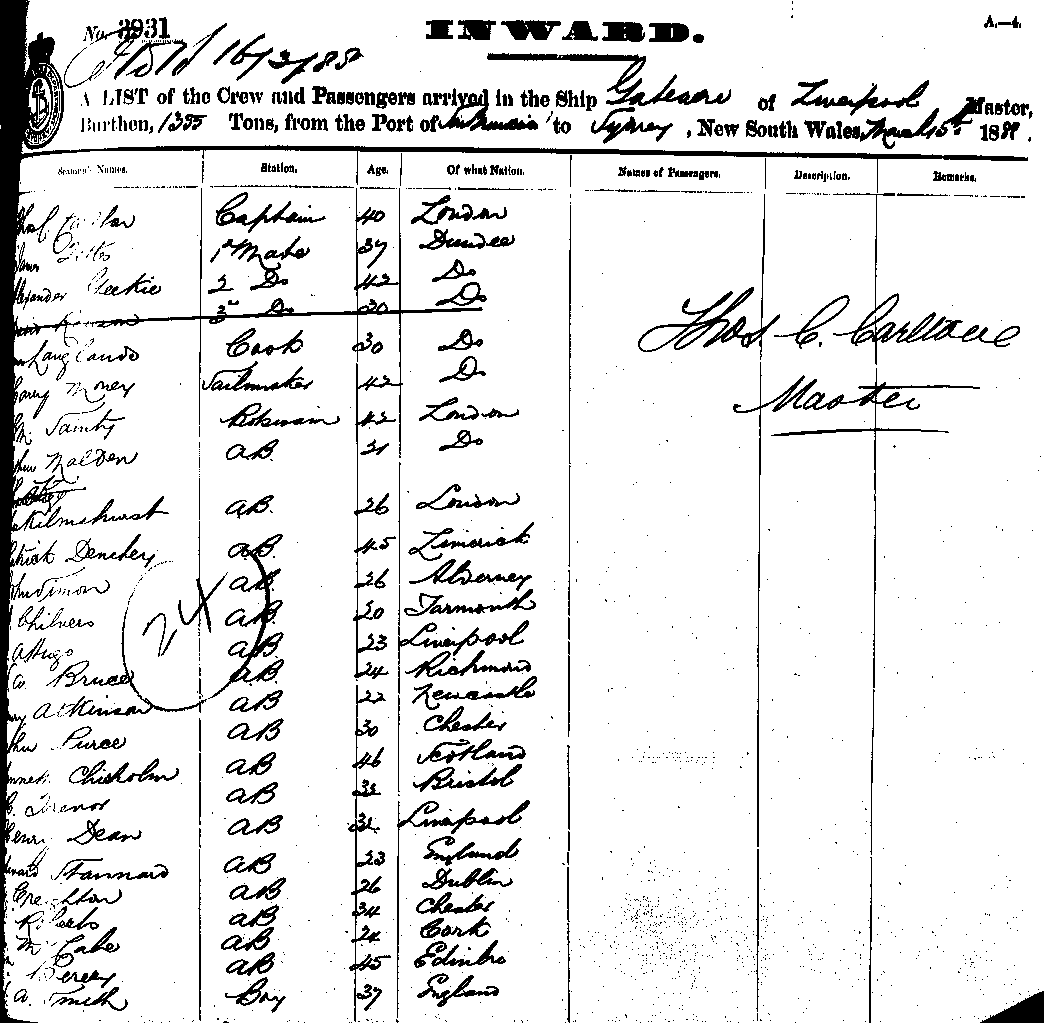 No. 3931 INWARD. A.—4.
16/3/88
A LIST of the Crew and Passengers arrived in the Ship Gateacre of Liverpool Master,
Burthen, 1395 Tons, from the Port of to Sydney, New South Wales, March 15th 188
Seamen's Names. Station. Age. Of what Nation. Names of Passengers. Description. Remarks.
Captain 40 London
1st Mate 37 Dundee
Geekie 2 Do 42 Do
3rd Do 20 Do
Langlands Cook 30 Do
Thos C. Carlton
Money Sailmaker 42 Do
Master
42 London
Malden AB. 21 Do
Kilmshurst AB. 26 London
Denehey AB. 45 Limerick
AB. 26 Alderney
24
Chilvers AB. 20 Yarmouth
AB 23 Liverpool
Bruce AB. 24 Richmond
Atkinson AB 22 Newcastle
AB 30 Chester
Chisholm AB 46 Scotland
Trenor AB 32 Bristol
Henry Dean AB 32 Liverpool
Stannard AB 23 England
Creighton AB 26 Dublin
Roberts AB 34 Chester
McCabe AB 24 Cork
AB 45 Edinbro
A. Smith Boy 37 England